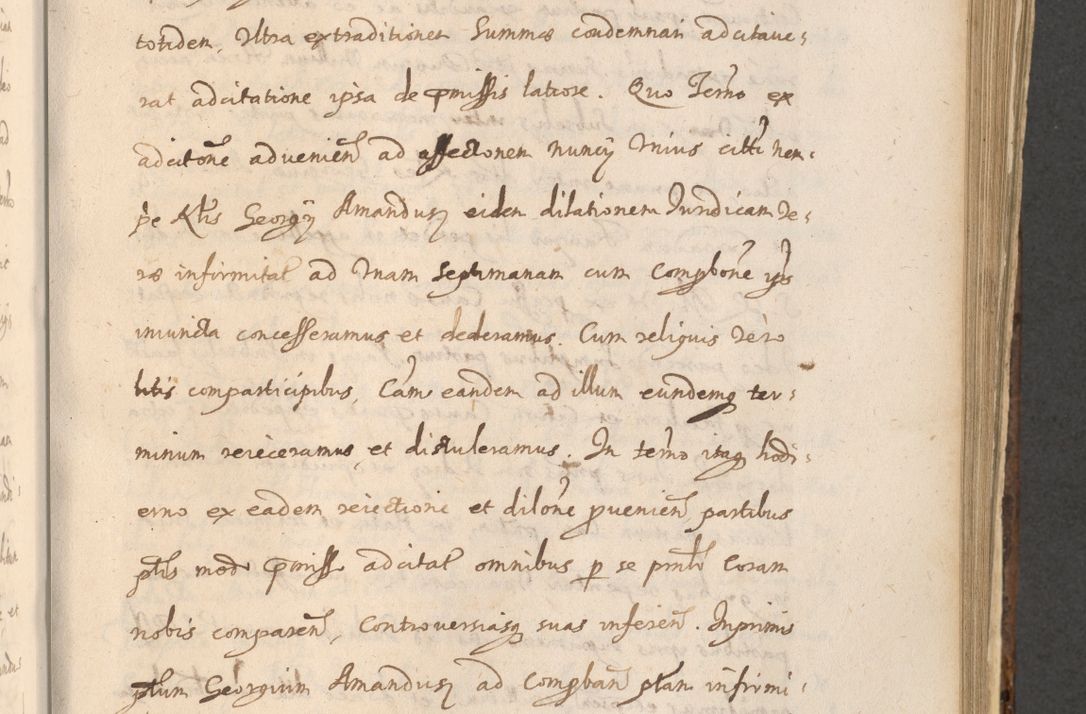 totidem, Ultra extraditionem Summae condemnari adcitave:
rat adcitatione ipsa de pmissis latiore. Quo Termo ex
adcitone advenien ad affectonem nuncij Unius citti nem:
pe Ktis Georgij Amandusz eidem dilationem Juridicam Ve:
rae infirmitat ad Unam Septimanam cum Compbone ips
iniuncta concesseramus et dederamus. Cum reliquis Vero
litis comparticipibus, Cam eandem ad illum eundemq ter:
minum reieceramus et distuleramus. In termo itaq hodi:
erno ex eadem reiectione et dilone pvenien partibus
ptis modo pmiss adcitat omnibus p se pntr Coram
nobis comparen, Controversiasq suas inferen. Inprimis
ptum Georgium Amandusz ad Compban ptam infirmi: